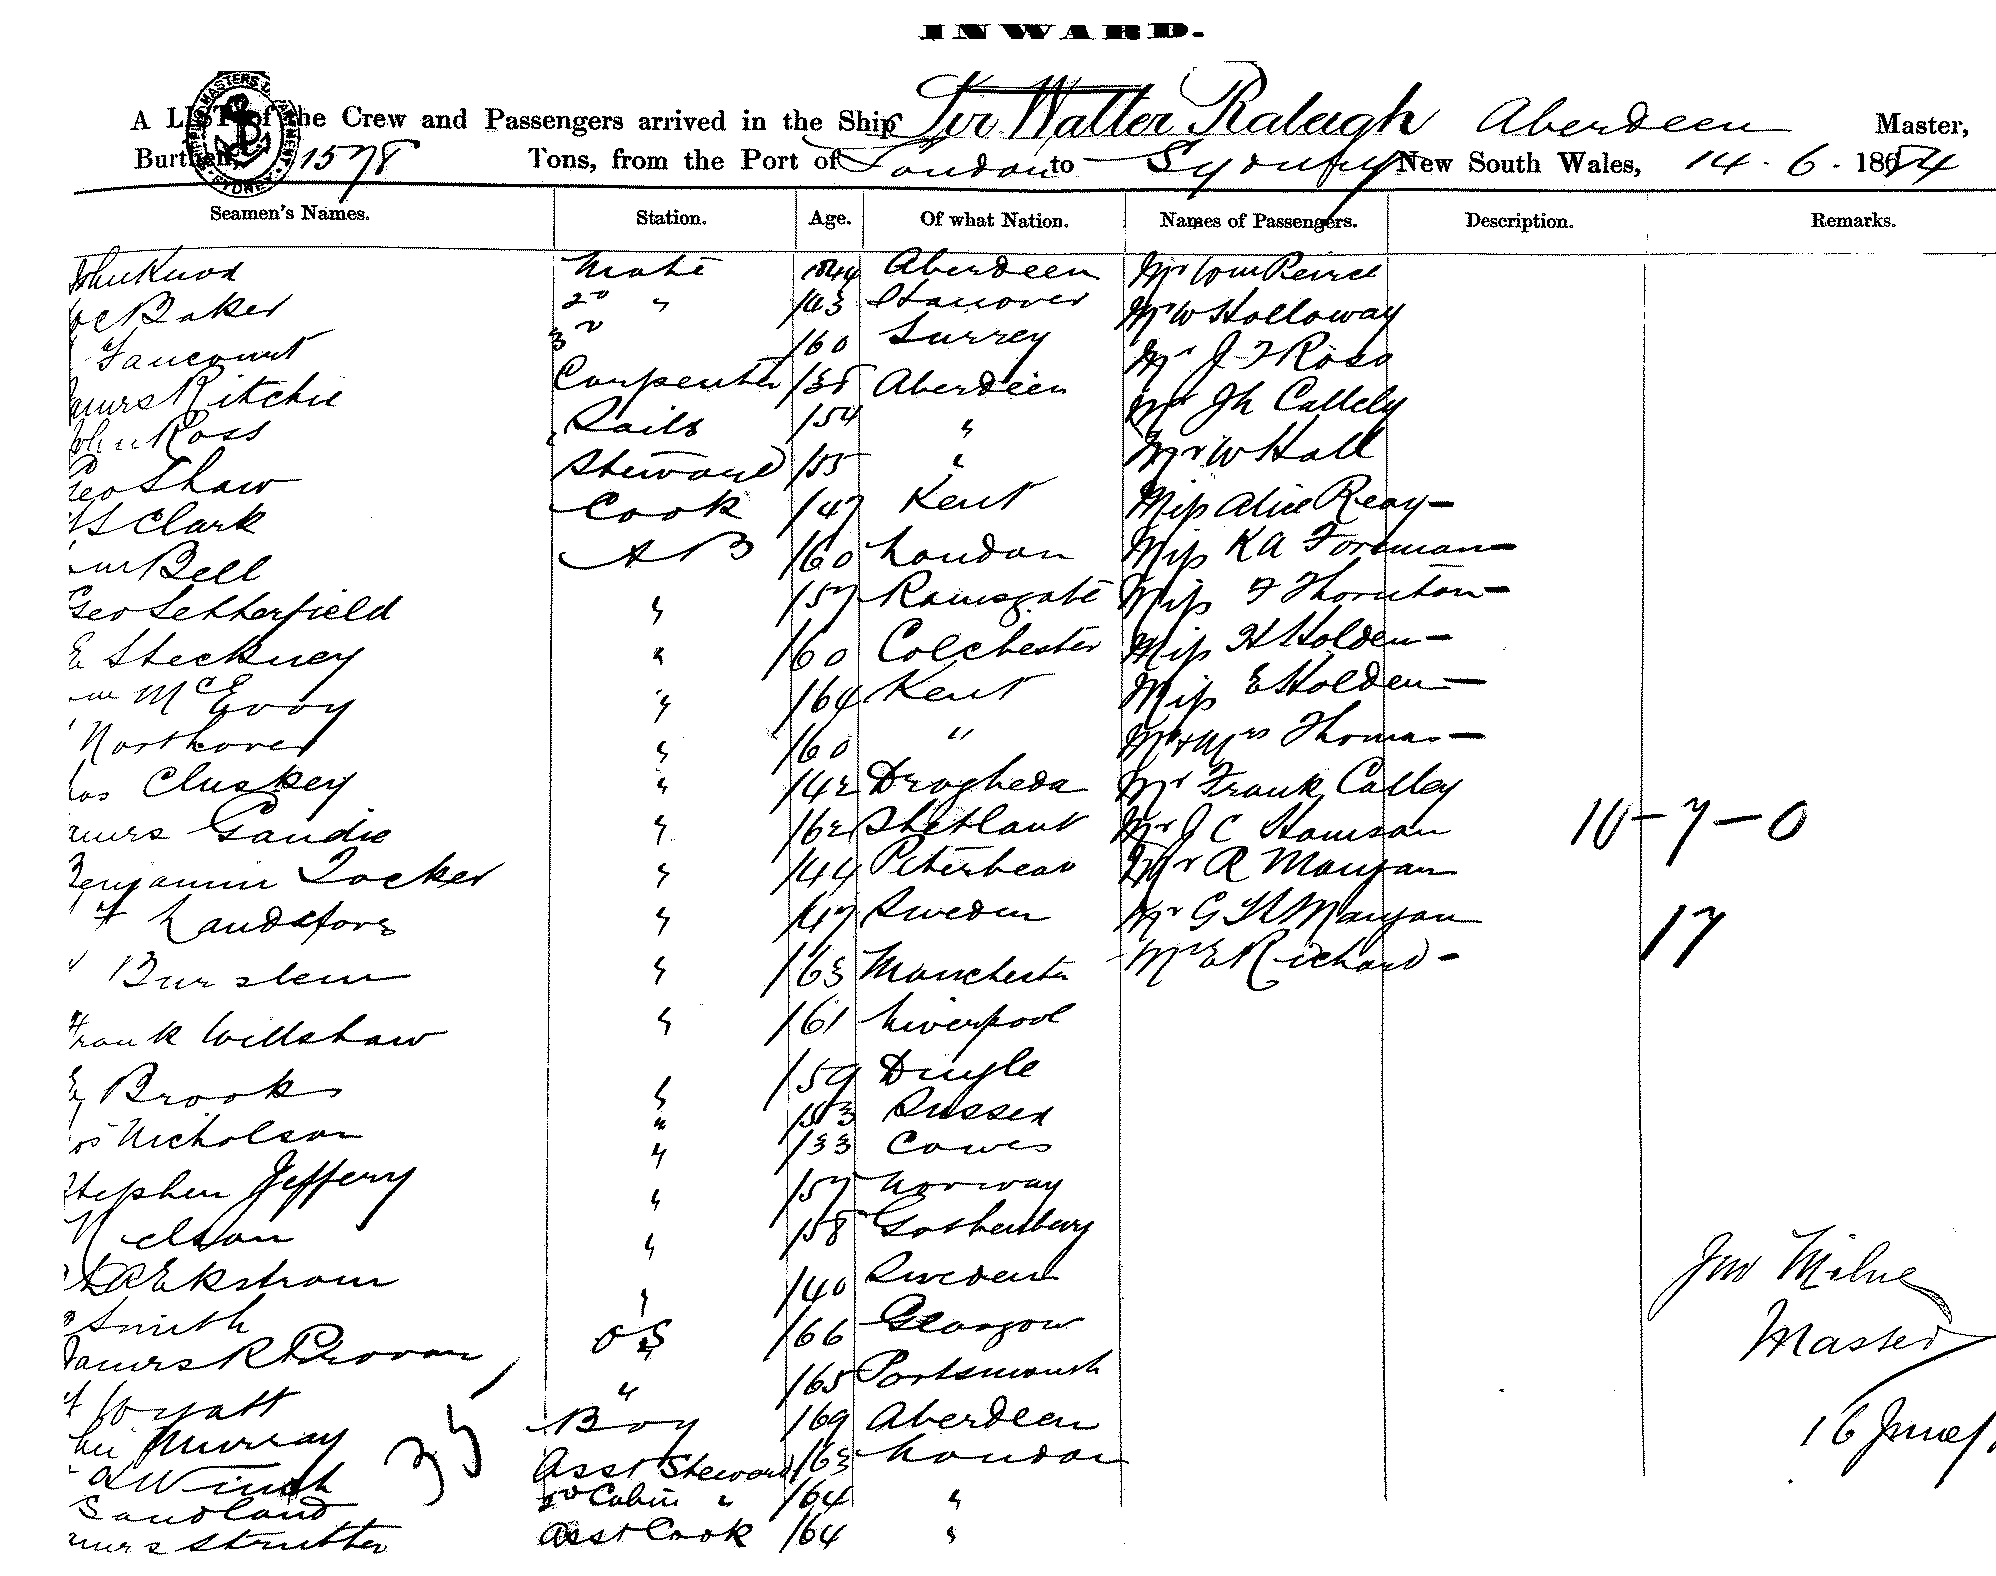 INWARD.
A LIST of the Crew and Passengers arrived in the Ship Sir Walter Raleigh Aberdeen Master,
Burthen, 1578 Tons, from the Port of London to Sydney New South Wales, 14 . 6 . 1884
Seamen's Names. Station. Age. Of what Nation. Names of Passengers. Description. Remarks.
John Knox Mate 1844 Aberdeen Mr Wm Peirce
Baker 2D " /43 Hanover Mr W Holloway
Faucourt 3D /60 Surrey Mr J F Ross
James Ritchie Carpenter /38 Aberdeen Mr Jh Callely
John Ross Sails /54 " Mr W Hall
Geo Shaw Steward /55 " Miss Alice Reay —
S Clark Cook /47 Kent Miss K A Foreman —
Wm Bell A B /60 London Miss F Thornton —
Geo Setterfield " /57 Ramsgate Miss H Holden —
E Steckney " /60 Colchester Miss E Holden —
Wm McEvoy " /64 Kent Mr & Mrs Thomas —
Northover " /60 " Mr Frank Calley
Cluskey " /42 Drogheda Mr J C Hamson
James Gaudie " /62 Shetlant Mr R Manyan
Benjamin Tocker " /44 Peterhead Mr G H Manyan
Landsford " /47 Sweden Mr E Richard —
10 — 7 — 0
17
Burslem " /63 Manchester
Frank Willshaw " /61 Liverpool
Brooks " /59 Dingle
Nicholson " /53 Sussex
Stephen Jeffery " /33 Cowes
Nelson " /57 Norway
Ekstrom " /58 Gothenburg
Smith " /40 Sweden
James R Provan O S /66 Glasgow
Wyatt " /65 Portsmouth
Murray Boy /69 Aberdeen
Winch Asst Steward /63 London
Sandland 2D Cabin " /64 "
James Strutter Asst Cook /64 "
35
Jno Milne
Master
16 June/